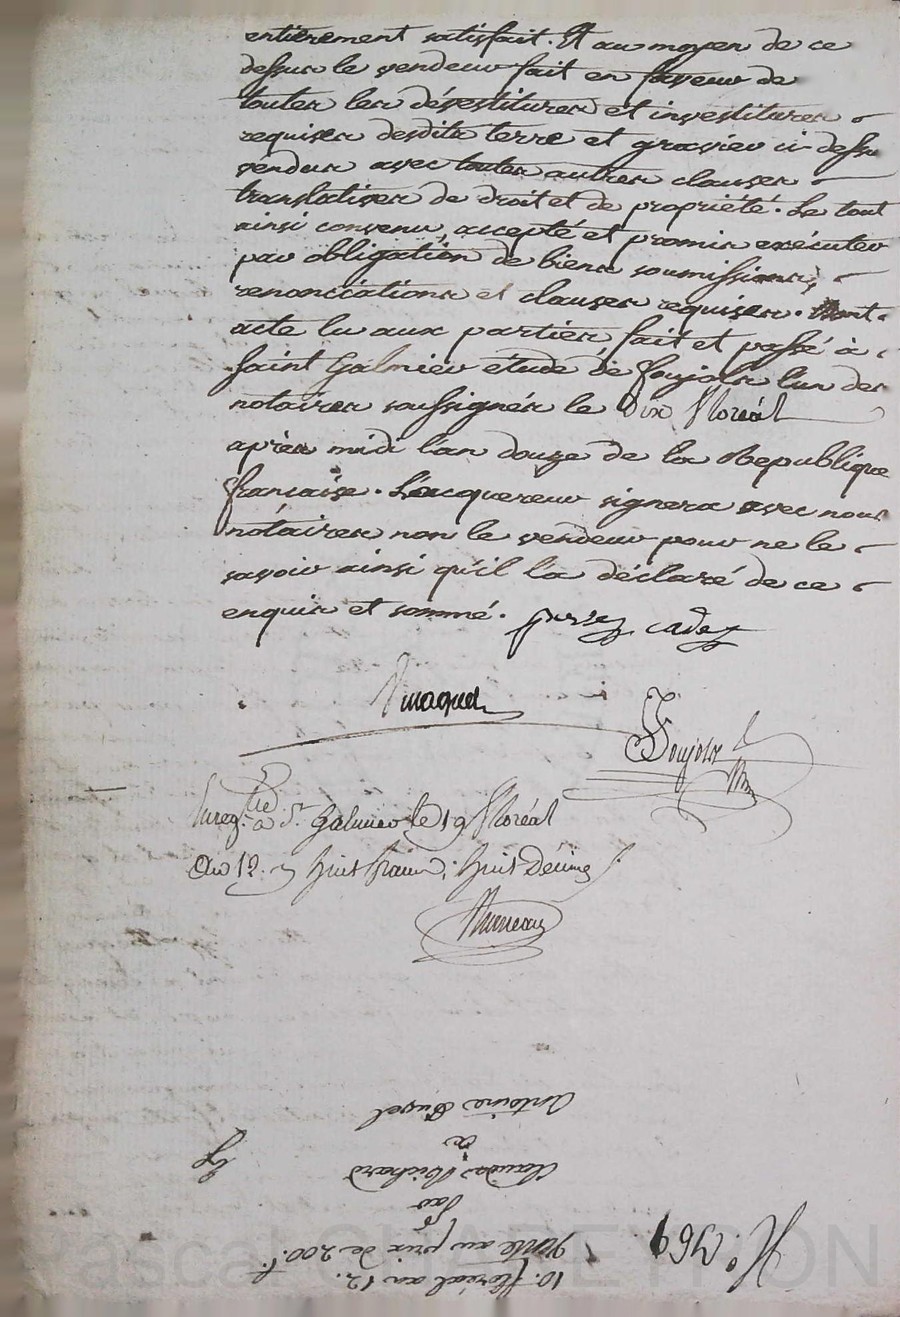 entièrement satisfait. Et au moyen de ce
dessus le vendeur fait en faveur de
toutes les dévestitures et investitures
requises desdits terre et gravier ci dessu
vendus avec toutes autres clauses
translatives de droit et de propriété. Le tout
ainsi convenu, accepté et promis exécuter
par obligation de biens soumissions,
renonciations et clauses requises. Dont
acte lu aux parties fait et passé à
Saint Galmier étude de Foujols l'un des
notaires soussignés le Dix Floréal
après midi l'an douze de la République
française. L'acquereur signera avec nous
notaires non le vendeur pour ne le
savoir ainsi qu'il l'a déclaré de ce
enquis et sommé.
Foujols
Enreg.tré à St Galmier le 19 Floréal
An 12. huit francs, huit Décimes
N°.
10. floréal an 12.
Vente au prix de 200.f
par
Claude Richard
à
Antoine